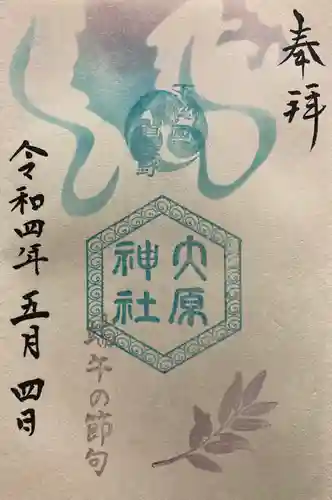 奉拝
大原
神社
端午の節句
令和四年 五月 四日